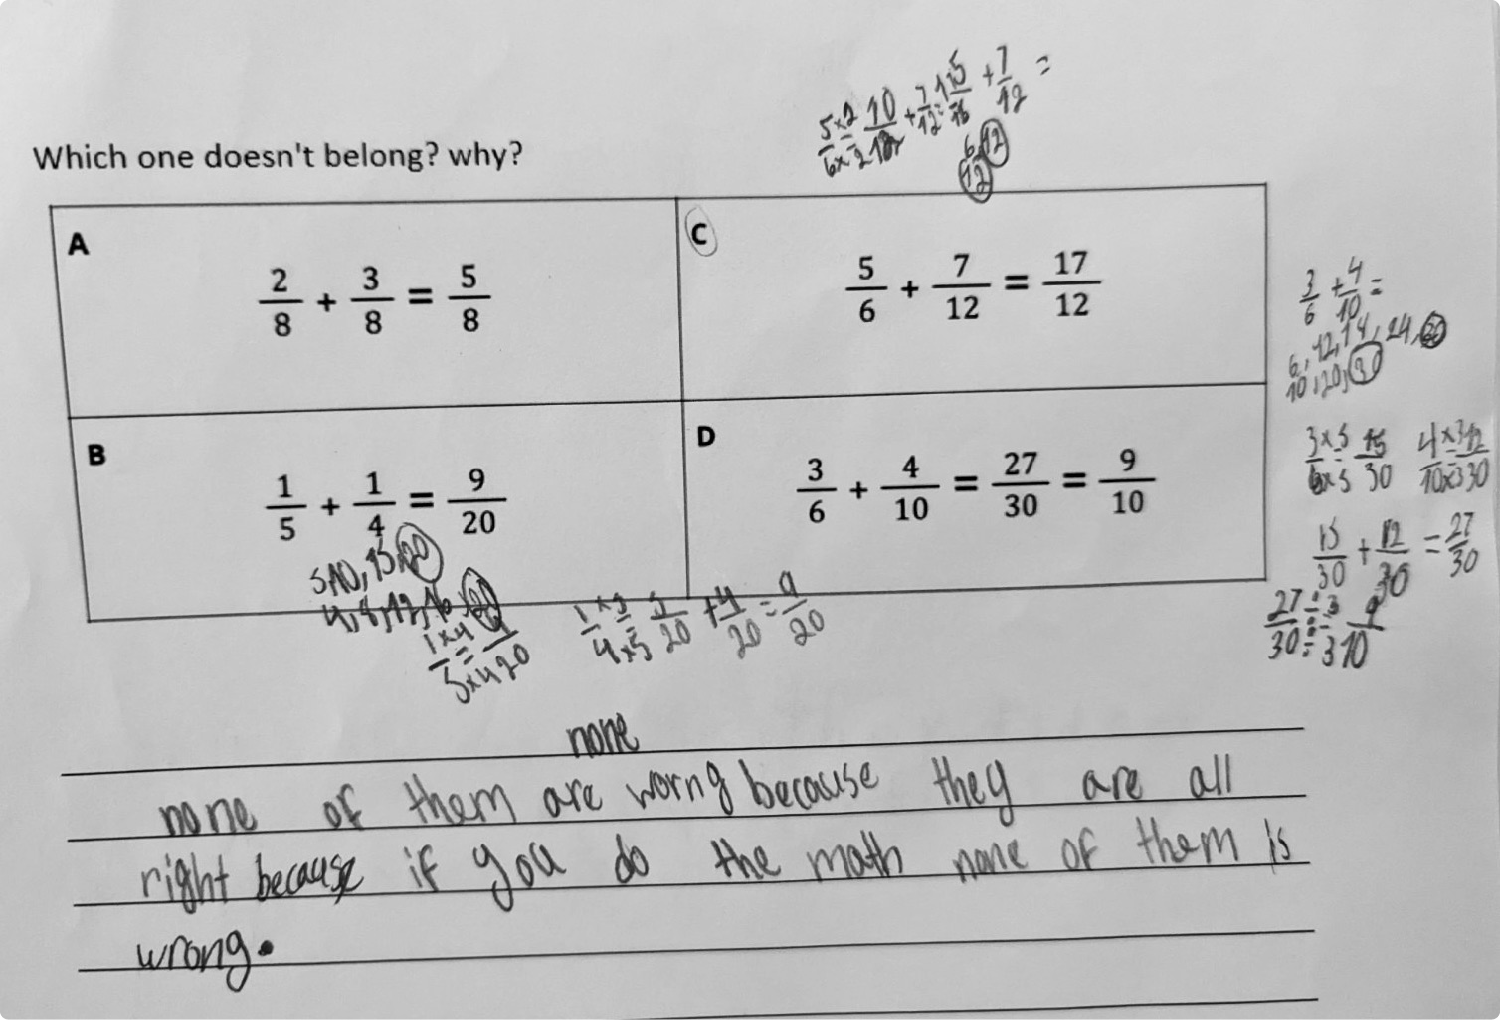 5/6 ×2/×2 = 10/12 + 7/12 = 15/16 + 7/12 =
6, 12
12
Which one doesn't belong? why?
A
2/8 + 3/8 = 5/8
C
5/6 + 7/12 = 17/12
3/6 + 4/10 =
6, 12, 14, 24, 30
10, 20, 30
B
1/5 + 1/4 = 9/20
5, 10, 15, 20
4, 8, 12, 16, 20
1×4/5×4 = 4/20
1×5/4×5 = 5/20 + 4/20 = 9/20
D
3/6 + 4/10 = 27/30 = 9/10
3×5/6×5 = 15/30 4×3/10×3 = 12/30
15/30 + 12/30 = 27/30
27÷3/30÷3 = 9/10
none
none of them are worng because they are all
right because if you do the math none of them is
wrong.